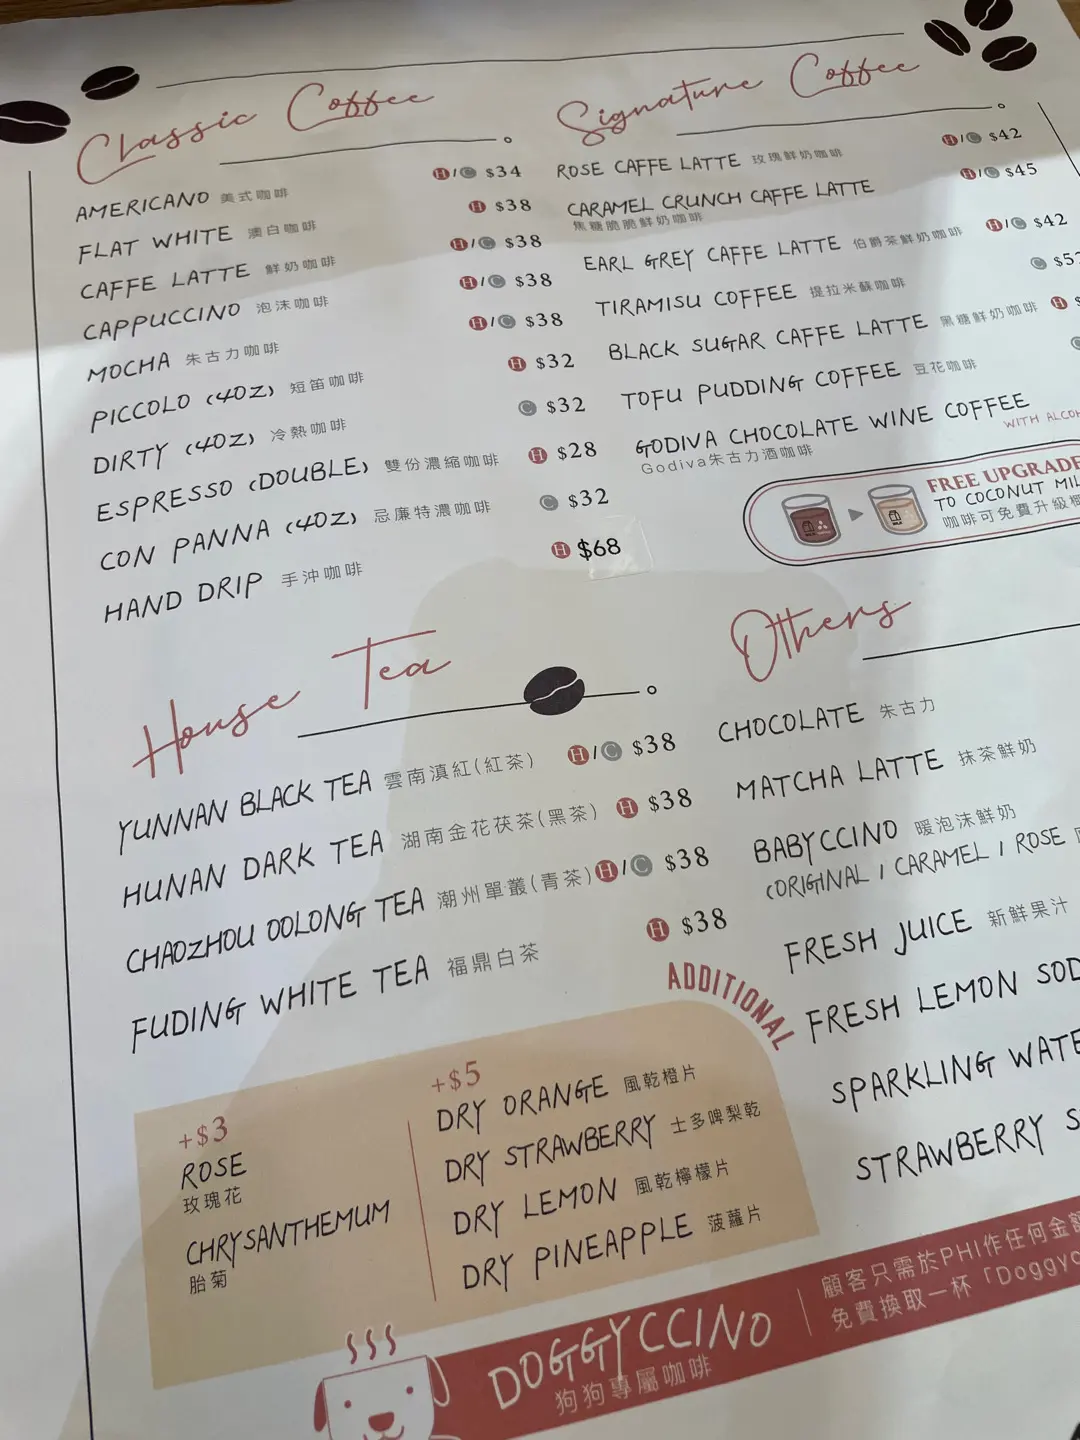 Classic Coffee
AMERICANO 美式咖啡 H/C $34
FLAT WHITE 澳白咖啡 H $38
CAFFE LATTE 鮮奶咖啡 H/C $38
CAPPUCCINO 泡沫咖啡 H/C $38
MOCHA 朱古力咖啡 H/C $38
PICCOLO (4OZ) 短笛咖啡 H $32
DIRTY (4OZ) 冷熱咖啡 C $32
ESPRESSO (DOUBLE) 雙份濃縮咖啡 H $28
CON PANNA (4OZ) 忌廉特濃咖啡 C $32
HAND DRIP 手沖咖啡 H $68
Signature Coffee
ROSE CAFFE LATTE 玫瑰鮮奶咖啡 H/C $42
CARAMEL CRUNCH CAFFE LATTE H/C $45
焦糖脆脆鮮奶咖啡
EARL GREY CAFFE LATTE 伯爵茶鮮奶咖啡 H/C $42
TIRAMISU COFFEE 提拉米蘇咖啡 C
BLACK SUGAR CAFFE LATTE 黑糖鮮奶咖啡 H
TOFU PUDDING COFFEE 豆花咖啡
GODIVA CHOCOLATE WINE COFFEE
Godiva朱古力酒咖啡
WITH
FREE UPGRADE
TO COCONUT
咖啡可免費升級
House Tea
YUNNAN BLACK TEA 雲南滇紅(紅茶) H/C $38
HUNAN DARK TEA 湖南金花茯茶(黑茶) H $38
CHAOZHOU OOLONG TEA 潮州單叢(青茶) H/C $38
FUDING WHITE TEA 福鼎白茶 H $38
Others
CHOCOLATE 朱古力
MATCHA LATTE 抹茶鮮奶
BABYCCINO 暖泡沫鮮奶
(ORIGINAL / CARAMEL / ROSE
FRESH JUICE 新鮮果汁
FRESH LEMON
SPARKLING
STRAWBERRY
ADDITIONAL
+$3
ROSE
玫瑰花
CHRYSANTHEMUM
胎菊
+$5
DRY ORANGE 風乾橙片
DRY STRAWBERRY 士多啤梨乾
DRY LEMON 風乾檸檬片
DRY PINEAPPLE 菠蘿片
DOGGYCCINO
狗狗專屬咖啡
顧客只需於PHI作任何金
免費換取一杯「